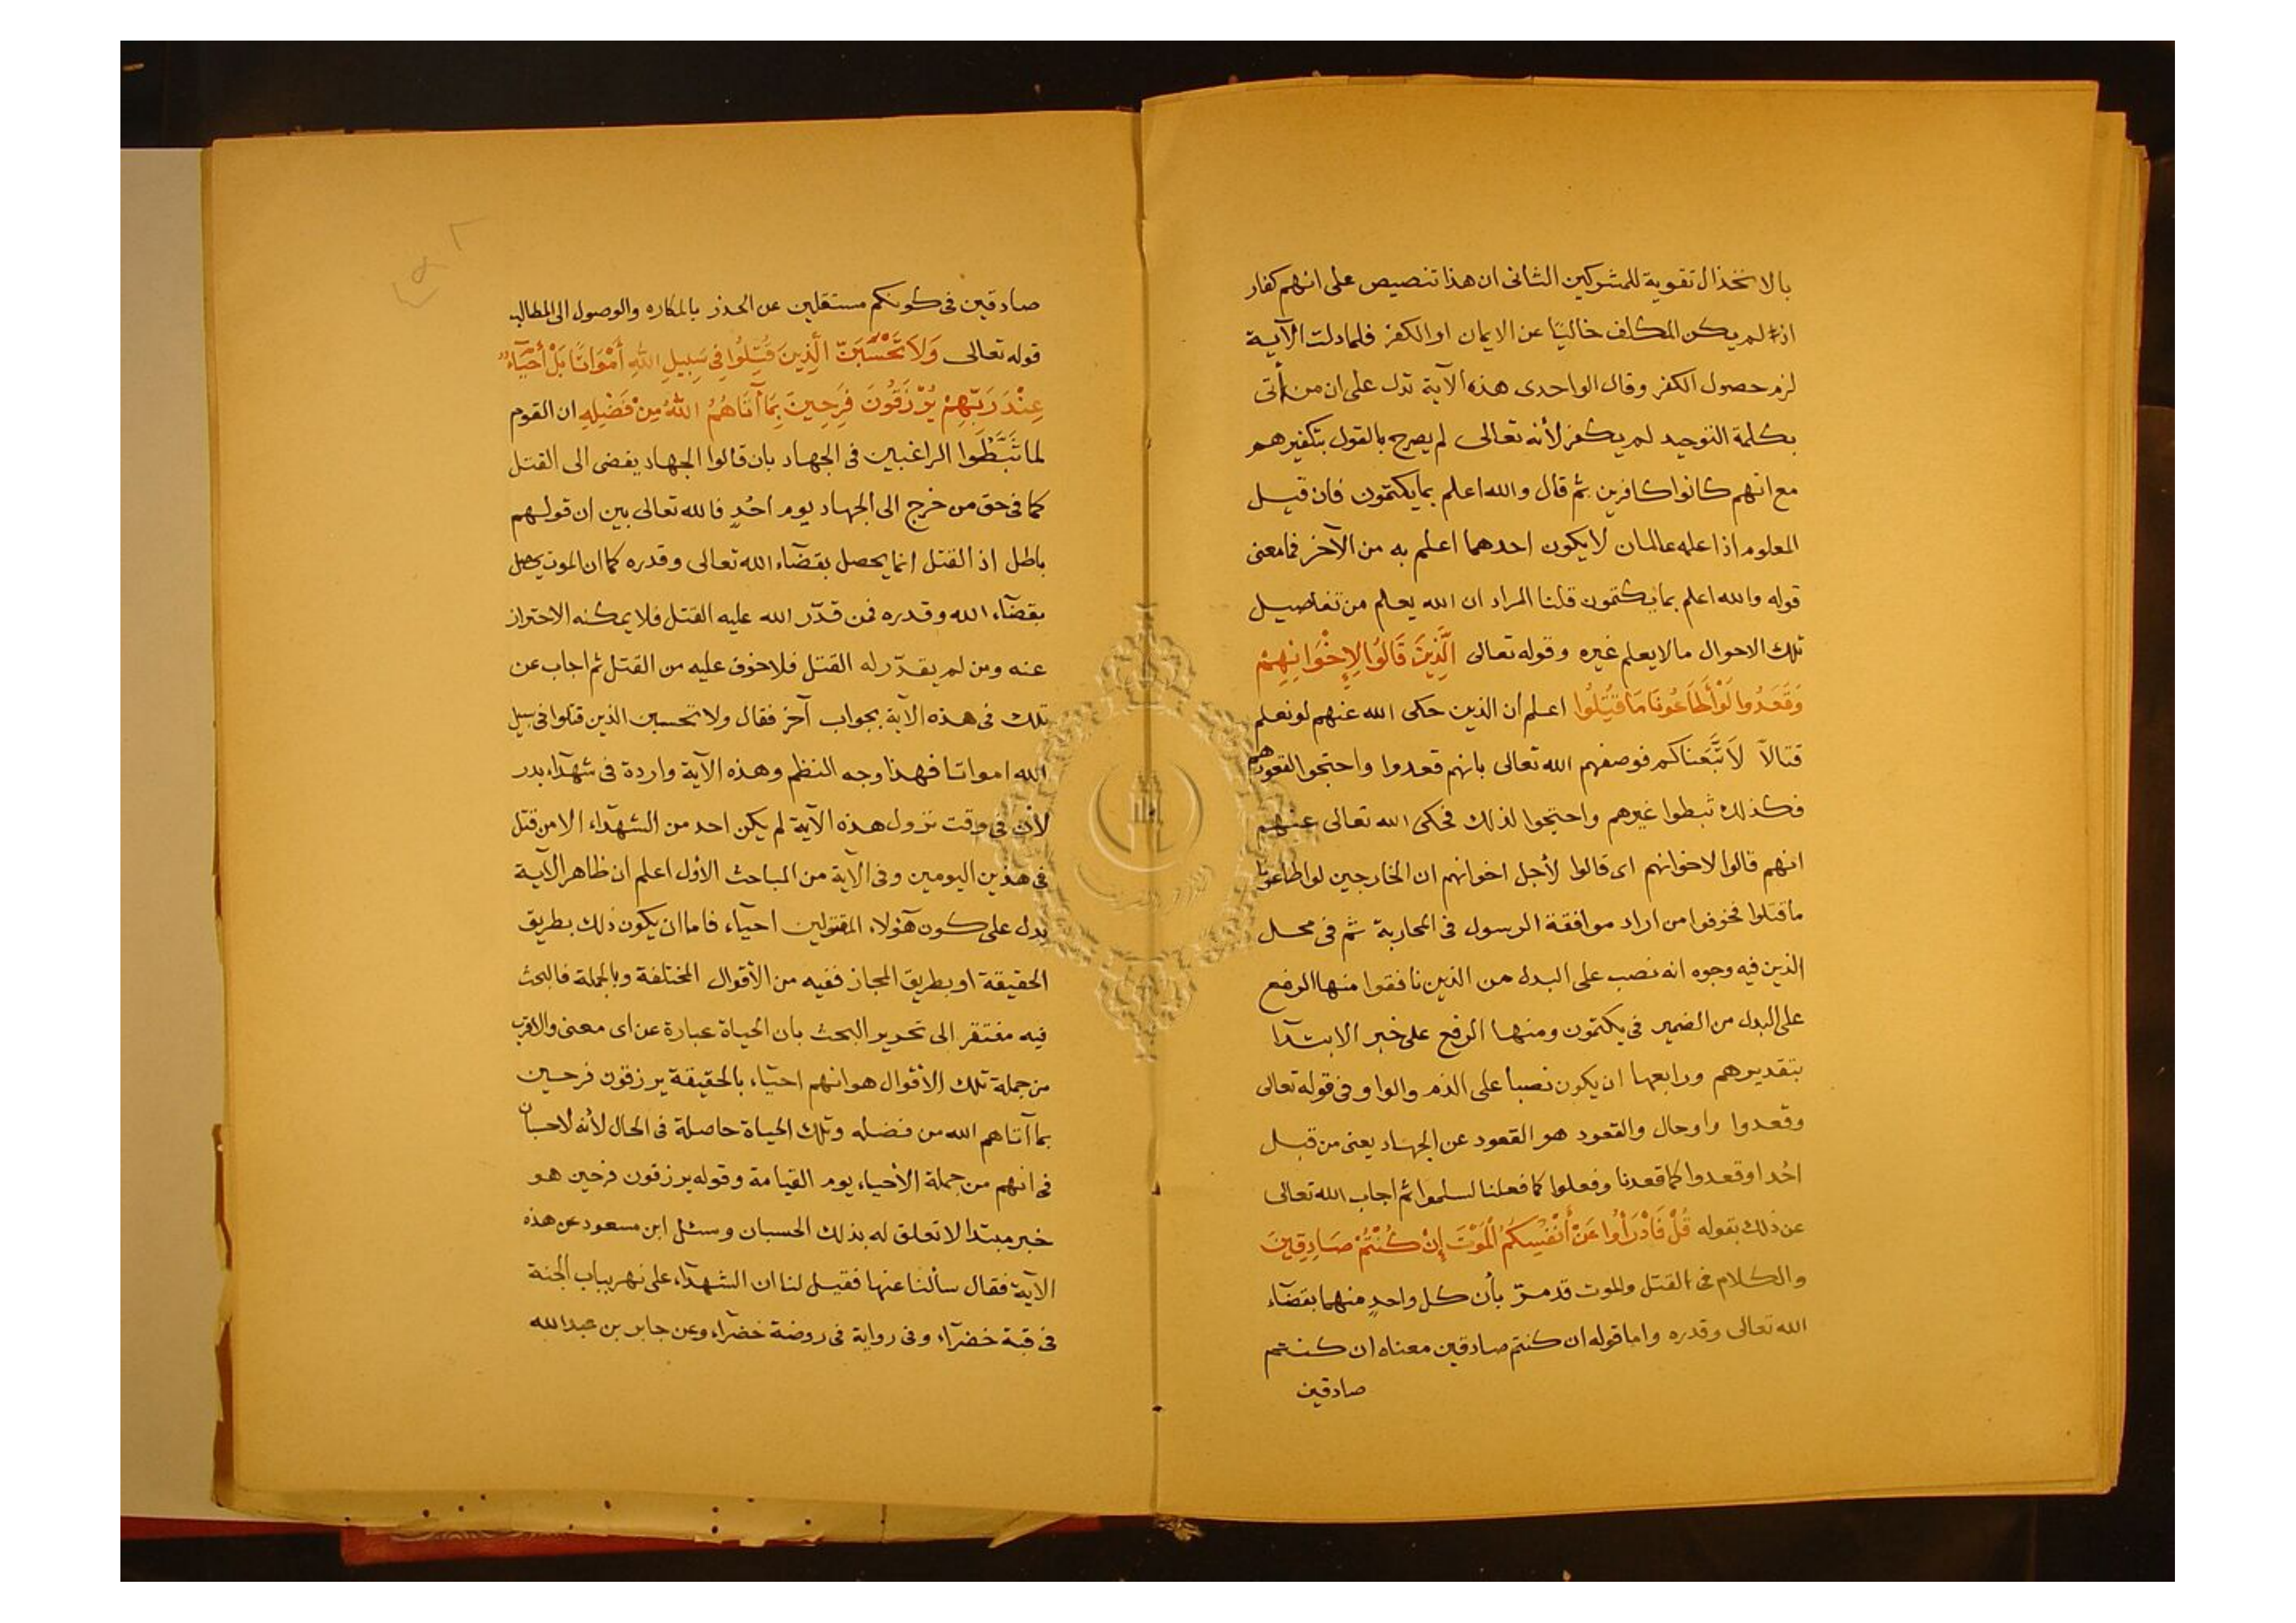 بالانخذال تقوية للمشركين الثانى ان هذا تنصيص على انهم كفار
اذ لم يكن المكلف خاليًا عن الايمان او الكفر فلما دلت الآية
لزم حصول الكفر وقال الواحدى هذه الآية تدل على ان من أتى
بكلمة التوحيد لم يكفر لأنه تعالى لم يصرح بالقول بتكفيرهم
مع انهم كانوا كافرين ثم قال والله اعلم بما يكتمون فان قيل
المعلوم اذا علمه عالمان لا يكون احدهما اعلم به من الآخر فما معنى
قوله والله اعلم بما يكتمون قلنا المراد ان الله يعلم من تفاصيل
تلك الاحوال مالا يعلم غيره وقوله تعالى الَّذِينَ قَالُوا لِإِخْوَانِهِمْ
وَقَعَدُوا لَوْ أَطَاعُونَا مَا قُتِلُوا اعلم أن الذين حكى الله عنهم لو نعلم
قتالاً لاَتَّبَعناكم فوصفهم الله تعالى بانهم قعدوا واحتجوا لقعودهم
فكذلك ثبطوا غيرهم واحتجوا لذلك فحكى الله تعالى عنهم
انهم قالوا لاخوانهم اى قالوا لأجل اخوانهم ان الخارجين لو اطاعونا
ما قتلوا فخوفوا من اراد موافقة الرسول فى المحاربة ثم فى محل
الذين فيه وجوه انه نصب على البدل من الذين نافقوا منها الرفع
على البدل من الضمير فى يكتمون ومنها الرفع على خبر الابتدآ
بتقدير هم ورابعها ان يكون نصبا على الذم والواو فى قوله تعالى
وقعدوا واو حال والقعود هو القعود عن الجهاد يعنى من قبل
احُد او قعدوا كما قعدنا وفعلوا كما فعلنا لسلموا ثم اجاب الله تعالى
عن ذلك بقوله قُلْ فَادْرَأُوا عَنْ أَنْفُسِكُمُ الْمَوْتَ إِنْ كُنْتُمْ صَادِقِينَ
والكلام فى القتل والموت قد مرّ بأن كل واحدٍ منهما بقضآء
الله تعالى وقدره واما قوله ان كنتم صادقين معناه ان كنتم
صادقين
صادقين فى كونكم مستقلين عن الحذر بالمكاره والوصول الى المطالب
قوله تعالى وَلاَ تَحْسَبَنَّ الَّذِينَ قُتِلُوا فِى سَبِيلِ اللهِ أَمْوَاتًا بَلْ أَحْيَآءٌ
عِنْدَ رَبِّهِمْ يُرْزَقُونَ فَرِحِينَ بِمَا آتَاهُمُ اللهُ مِنْ فَضْلِهِ ان القوم
لما ثَبَّطُوا الراغبين فى الجهاد بان قالوا الجهاد يفضى الى القتل
كما فى حق من خرج الى الجهاد يوم احُدٍ فالله تعالى بين ان قولهم
باطل اذ القتل انما يحصل بقضآء الله تعالى وقدره كما ان الموت يحصل
بقضآء الله وقدره فمن قدّر الله عليه القتل فلا يمكنه الاحتراز
عنه ومن لم يقدّر له القتل فلا خوف عليه من القتل ثم اجاب عن
تلك فى هذه الآية بجواب آخر فقال ولا تحسبن الذين قتلوا فى سبيل
الله امواتا فهذا وجه النظم وهذه الآية واردة فى شهدآء بدر
لأن فى وقت نزول هذه الآية لم يكن احد من الشهدآء الا من قتل
فى هذين اليومين وفى الآية من المباحث الأول اعلم ان ظاهر الآية
يدل على كون هؤلاء المقتولين احيآء فاما ان يكون ذلك بطريق
الحقيقة او بطريق المجاز ففيه من الأقوال المختلفة وبالجملة فالبحث
فيه مفتقر الى تحرير البحث بان الحياة عبارة عن اى معنى والاقرب
من جملة تلك الأقوال هو انهم احيآء بالحقيقة يرزقون فرحين
بما آتاهم الله من فضله وتلك الحياة حاصلة فى الحال لأنه لا حسبان
فى انهم من جملة الأحياء يوم القيامة وقوله يرزقون فرحين هو
خبر مبتدا لا تعلق له بذلك الحسبان وسئل ابن مسعود عن هذه
الآية فقال سألنا عنها فقيل لنا ان الشهدآء على نهر بباب الجنة
فى قبة خضرآء وفى رواية فى روضة خضرآء وعن جابر بن عبد الله